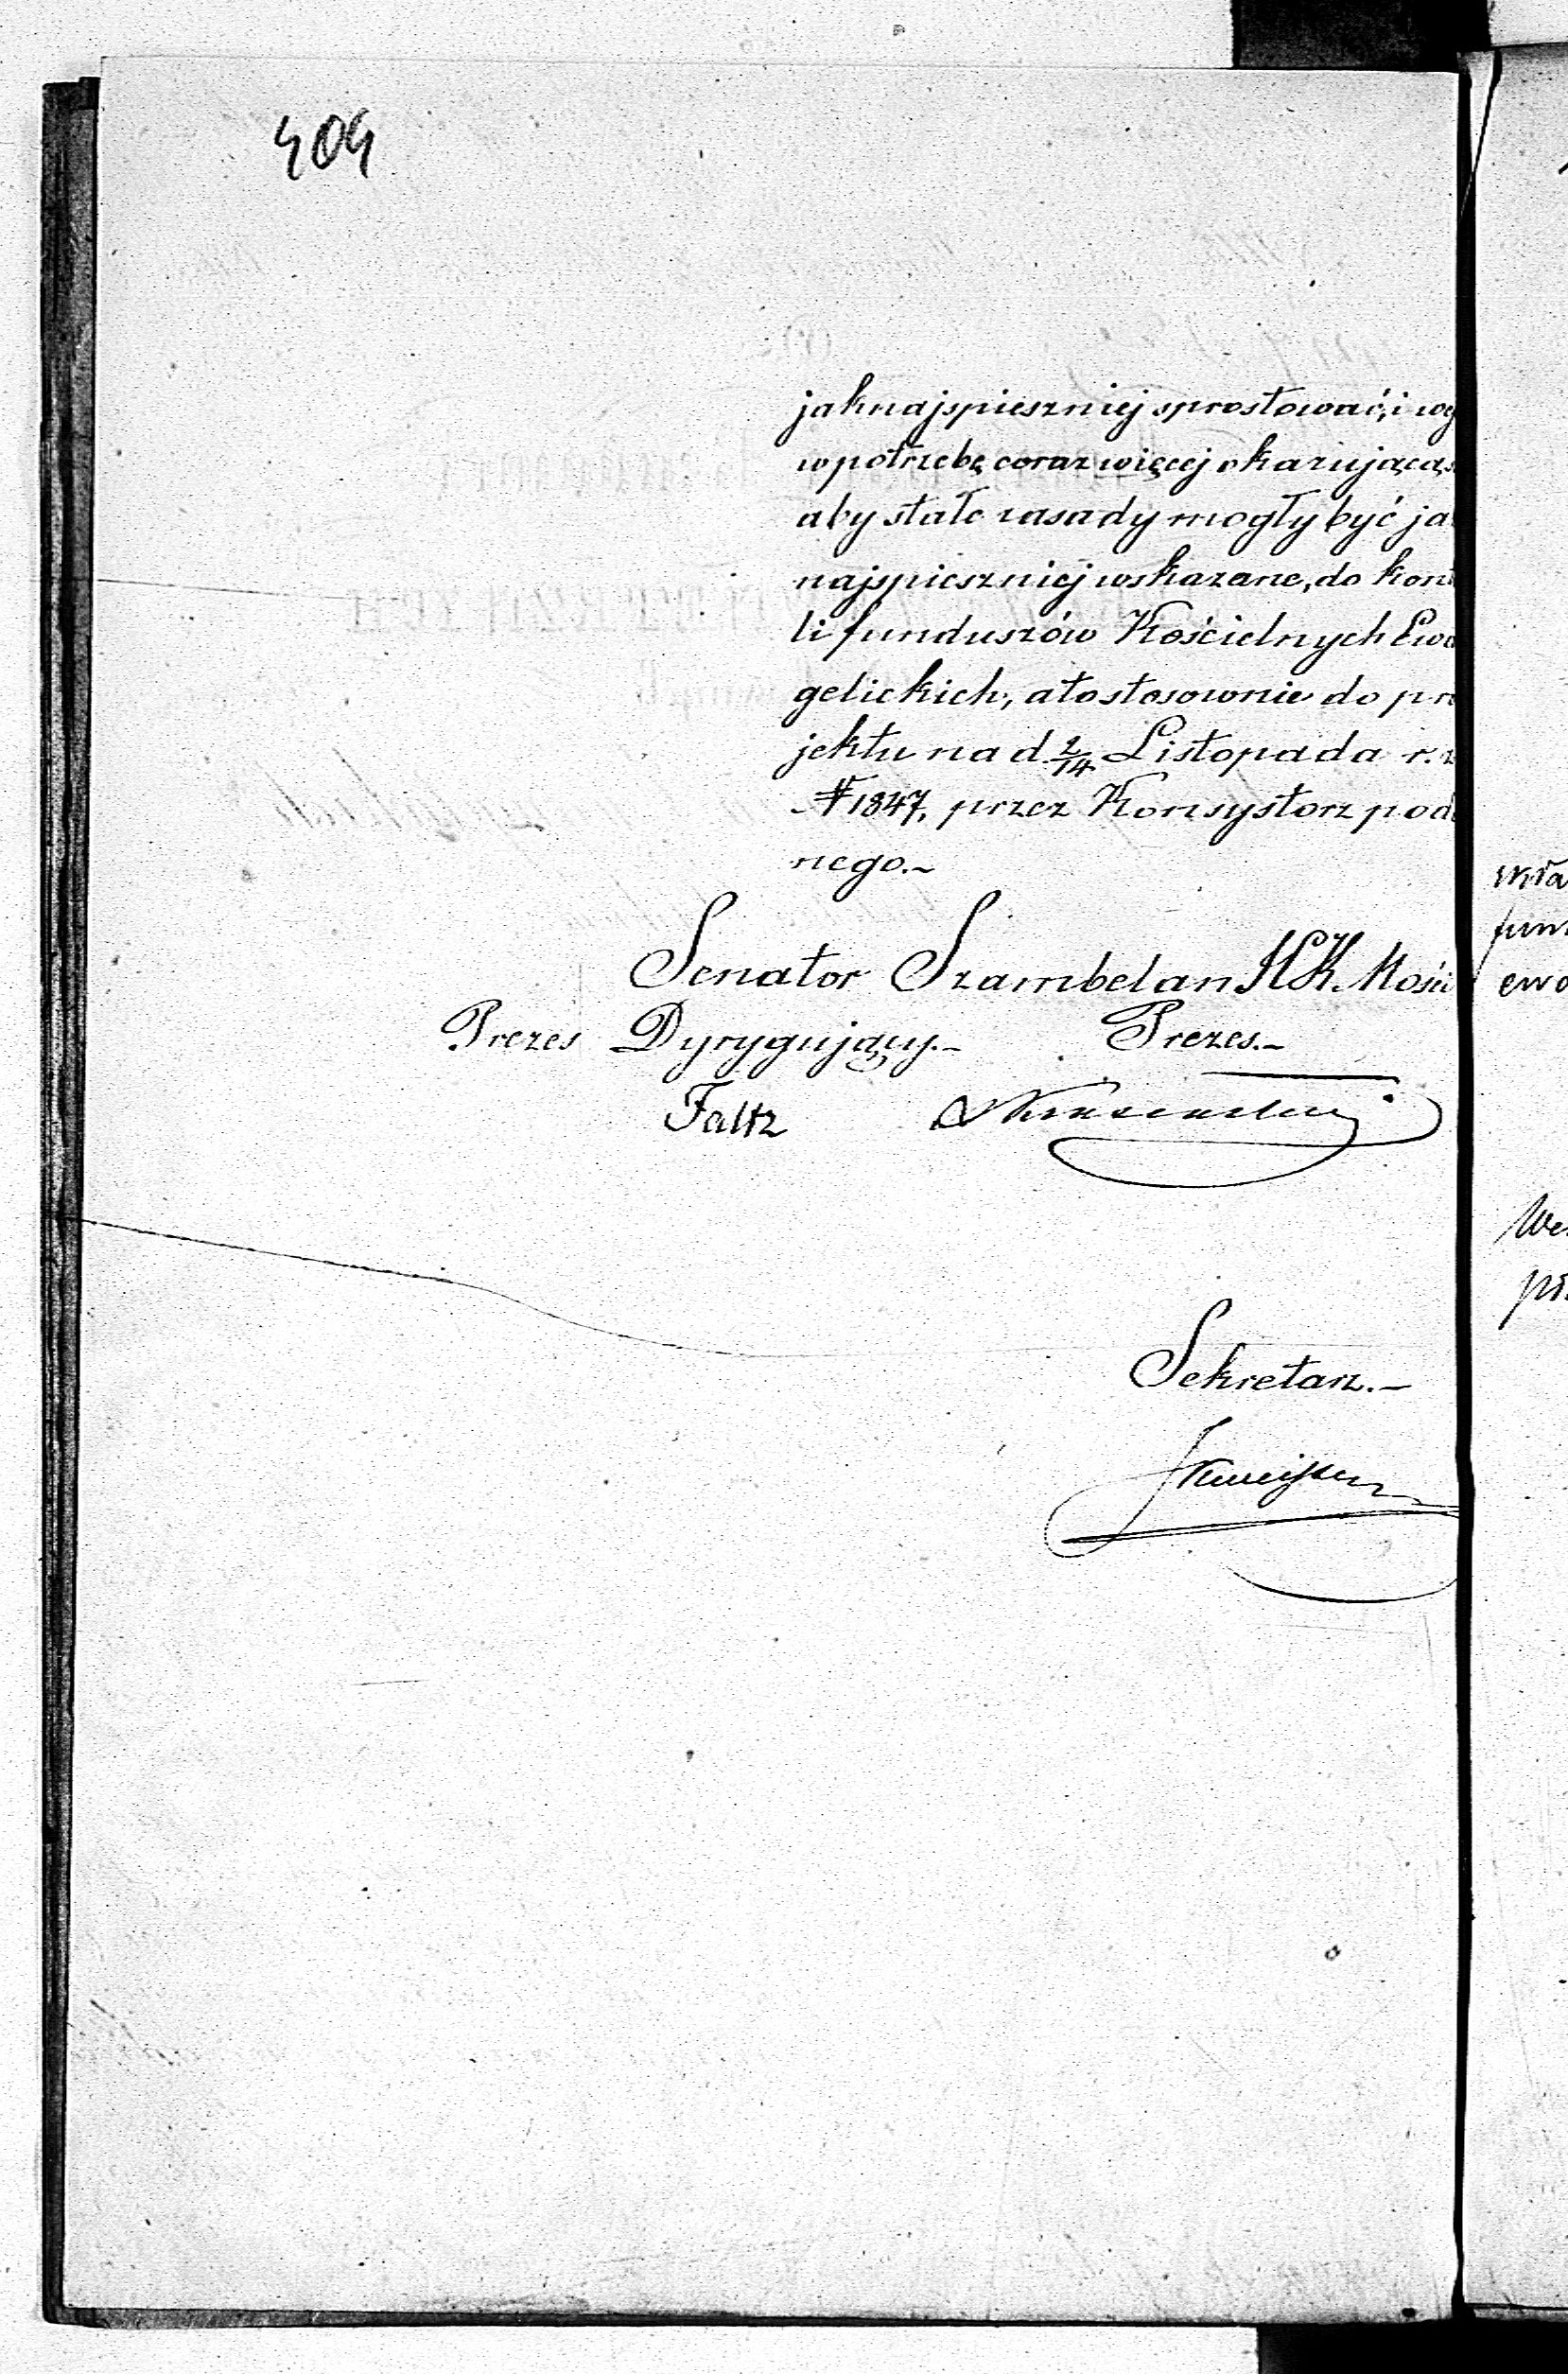 404
jaknajspieszniej sprostować, i wej
w potrzebę coraz więcej okazującą s
aby stałe zasady mogły być ja
najspieszniej wskazane, do kont
li funduszów Kościelnych Ewa
gelickich, a to stosownie do pro
jektu na d. 2/14 Listopada r. z
N 1847, przez Konsystorz poda
nego.~
Senator Szambelan J.C.K. Mości
Prezes Dyrygujący.~ Prezes.~
Faltz
Sekretarz.~